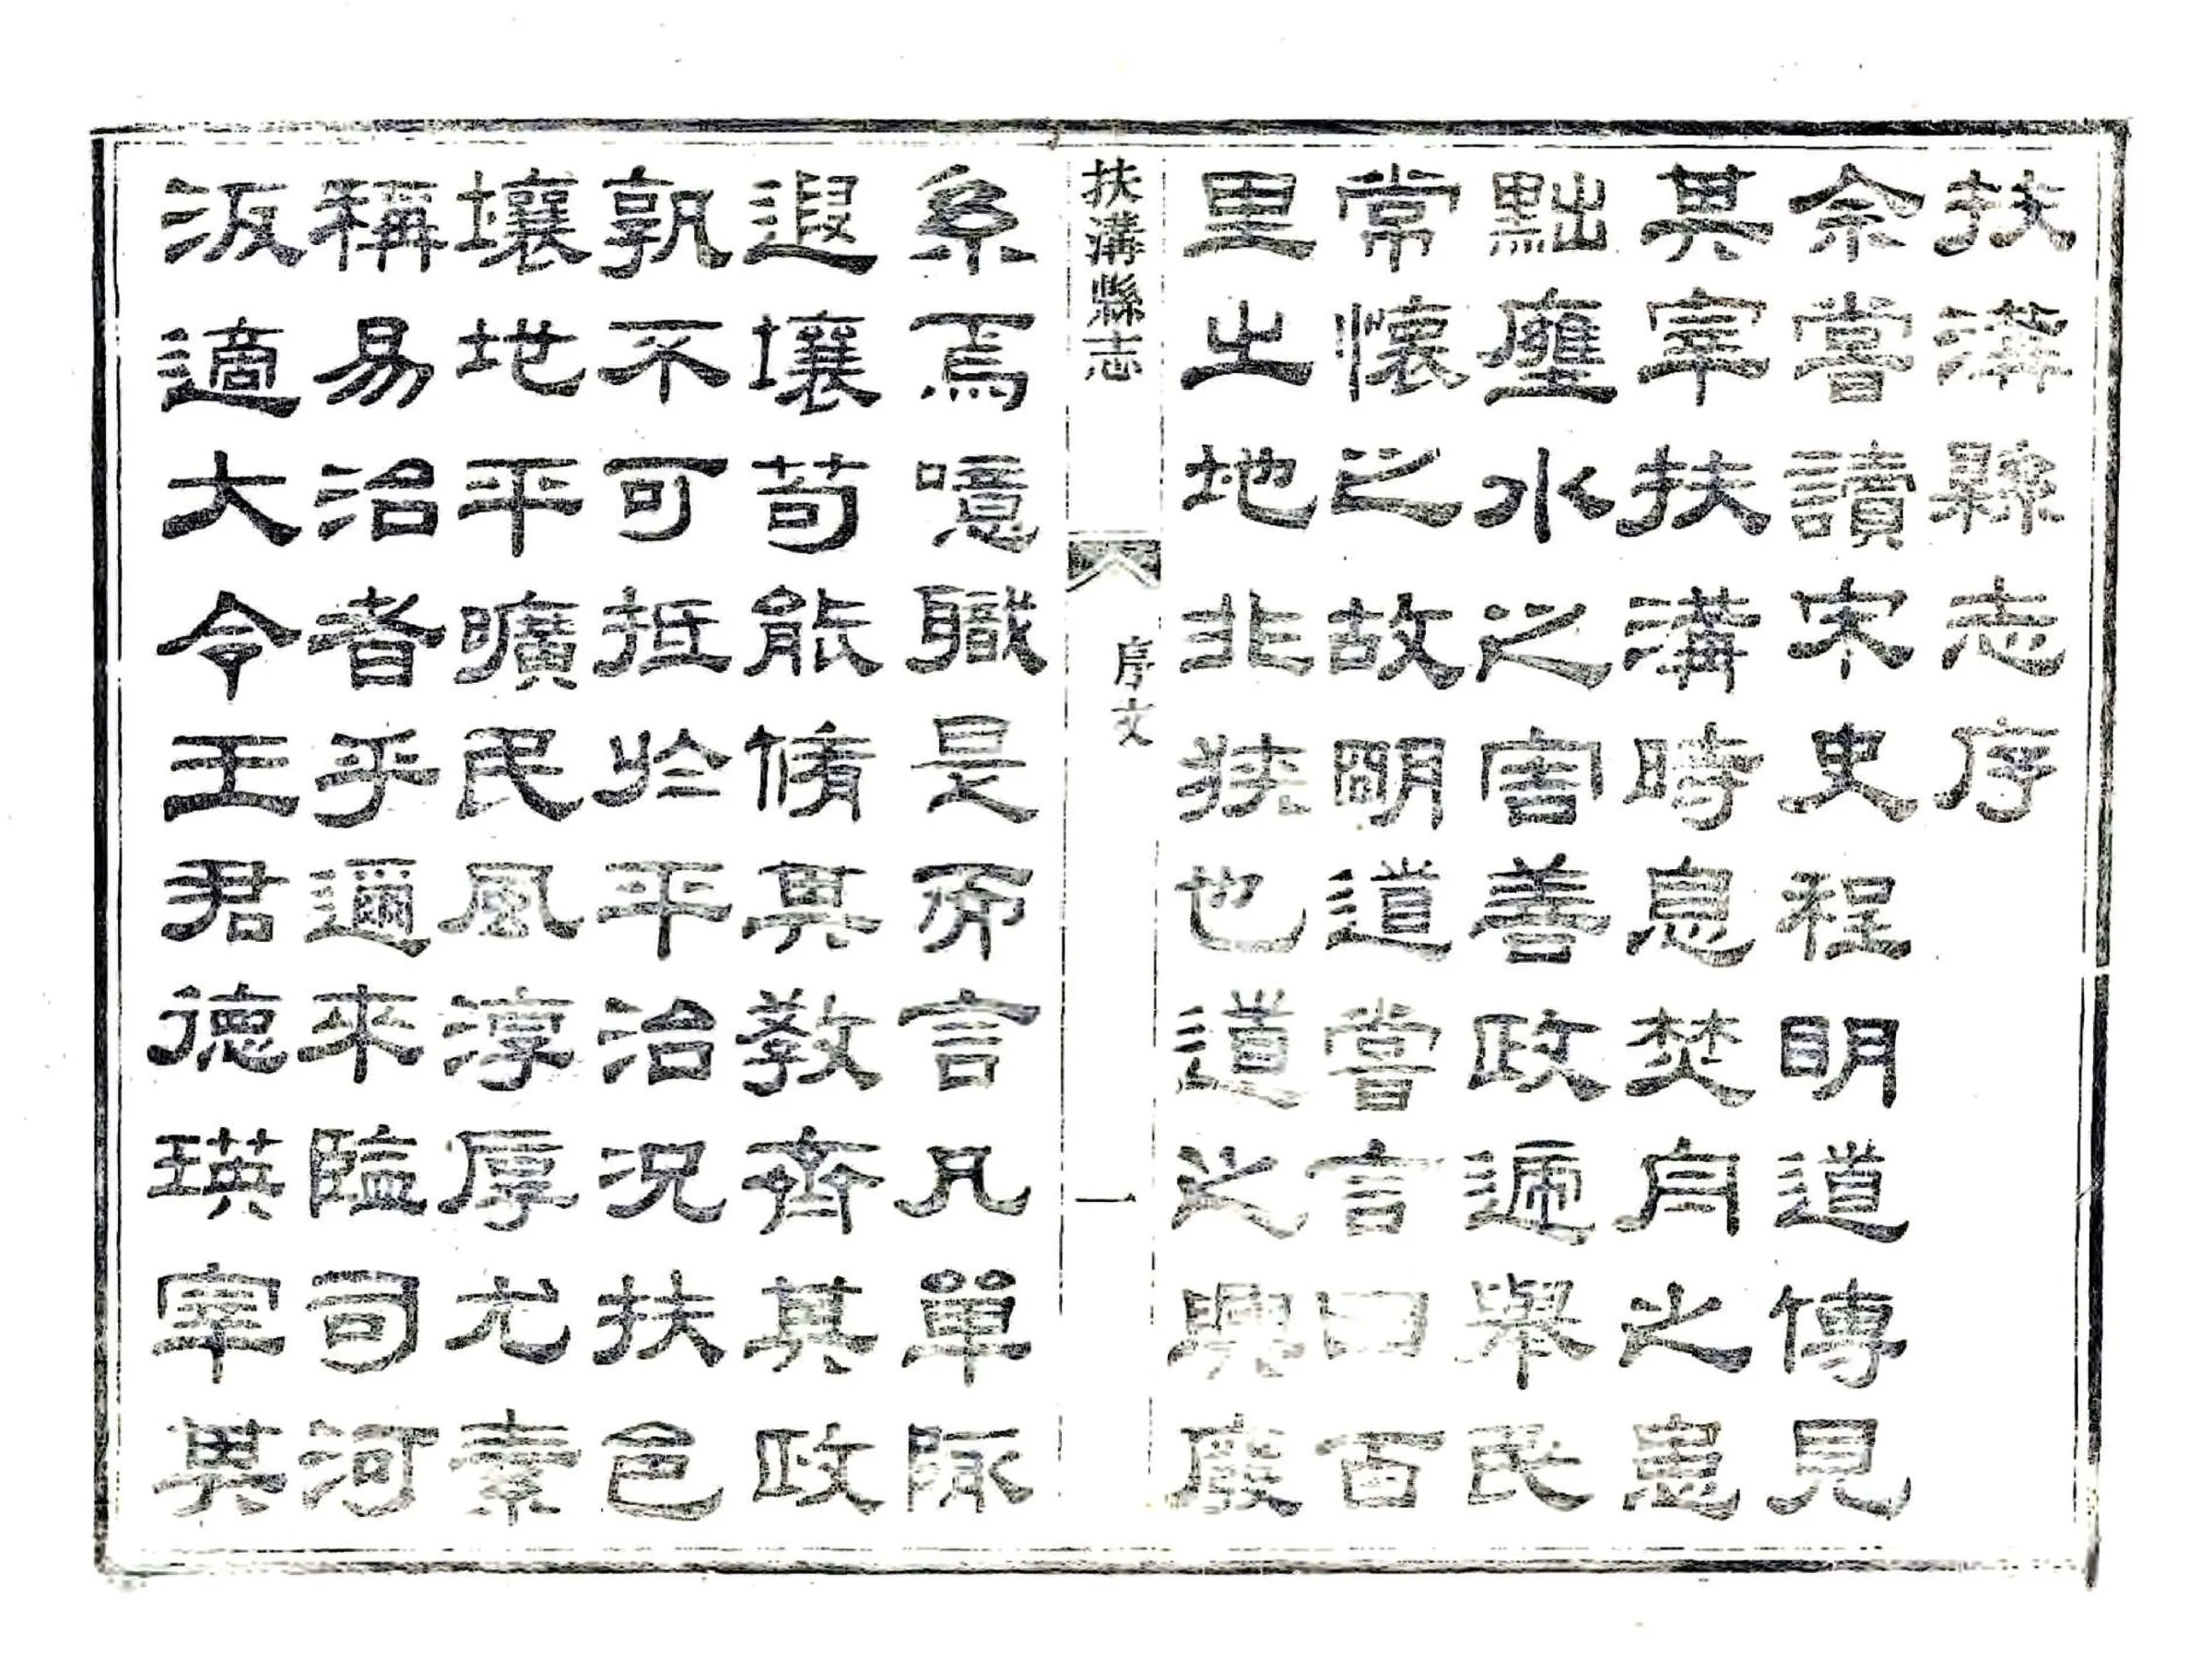 扶溝縣志序
余嘗讀宋史程明道傳見
其宰扶溝時息焚舟之患
點壅水之害善政遞舉民
常懷之故明道嘗言曰百
里之地非狹也道之興廢
扶溝縣志
序文
一
系焉噫職是而言凡單陬
遐壤苟能脩其教齊其政
孰不可抵於平治況扶邑
壤地平曠民風淳厚尤素
稱易治者乎邇來臨司河
汳適大令王君德瑛宰其